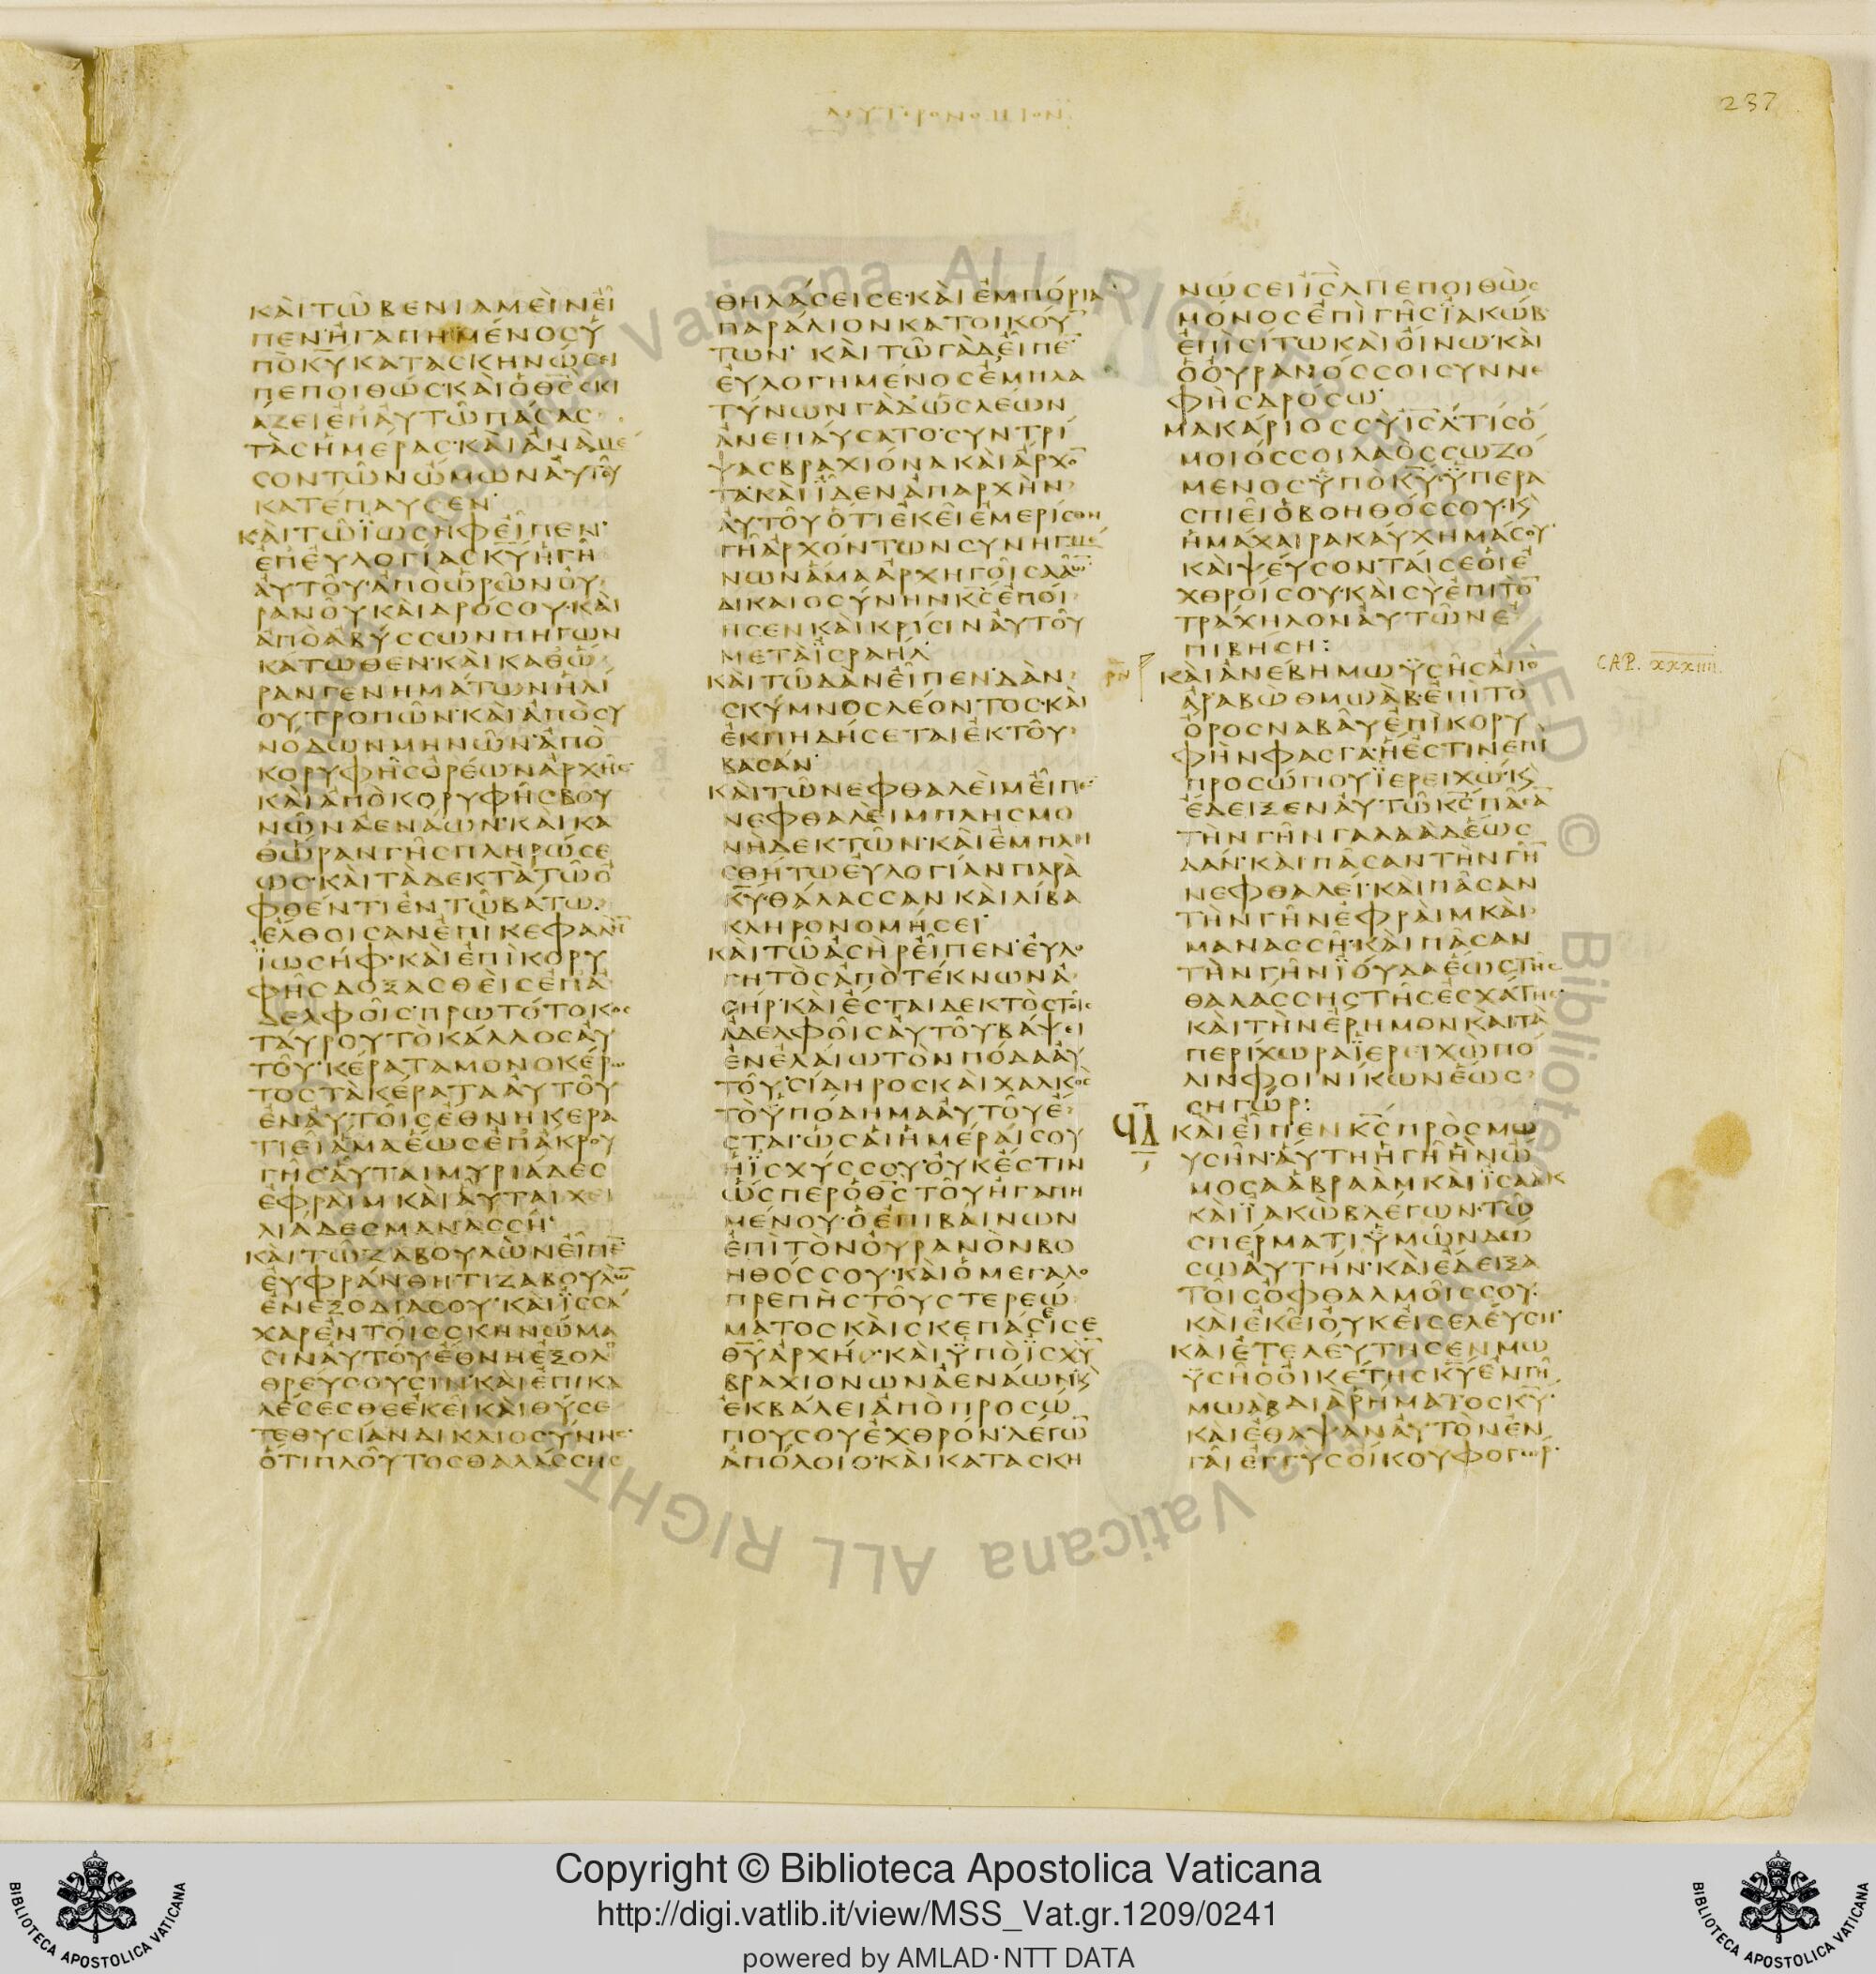 237
ΔΕΥΤΕΡΟΝΟΜΙΟΝ
ΚΑΙΤΩΒΕΝΙΑΜΕΙΝΕΙ
ΠΕΝΗΓΑΠΗΜΕΝΟΣΥ
ΠΟΚΥΚΑΤΑΣΚΗΝΩΣΕΙ
ΠΕΠΟΙΘΩΣΚΑΙΟΘΣΣΚΙ
ΑΖΕΙΕΠΑΥΤΩΠΑΣΑΣ
ΤΑΣΗΜΕΡΑΣΚΑΙΑΝΑΜΕ
ΣΟΝΤΩΝΩΜΩΝΑΥΤΟΥ
ΚΑΤΕΠΑΥΣΕΝ
ΚΑΙΤΩΪΩΣΗΦΕΙΠΕΝ
ΕΠΕΥΛΟΓΙΑΣΚΥΗΓΗ
ΑΥΤΟΥΑΠΟΩΡΩΝΟΥ
ΡΑΝΟΥΚΑΙΔΡΟΣΟΥΚΑΙ
ΑΠΟΑΒΥΣΣΩΝΠΗΓΩΝ
ΚΑΤΩΘΕΝΚΑΙΚΑΘΩ
ΡΑΝΓΕΝΗΜΑΤΩΝΗΛΙ
ΟΥΤΡΟΠΩΝΚΑΙΑΠΟΣΥ
ΝΟΔΩΝΜΗΝΩΝΑΠΟ
ΚΟΡΥΦΗΣΟΡΕΩΝΑΡΧΗΣ
ΚΑΙΑΠΟΚΟΡΥΦΗΣΒΟΥ
ΝΩΝΑΕΝΑΩΝΚΑΙΚΑ
ΘΩΡΑΝΓΗΣΠΛΗΡΩΣΕ
ΩΣΚΑΙΤΑΔΕΚΤΑΤΩΟ
ΦΘΕΝΤΙΕΝΤΩΒΑΤΩ
ΕΛΘΟΙΣΑΝΕΠΙΚΕΦΑΛΗ
ΪΩΣΗΦΚΑΙΕΠΙΚΟΡΥ
ΦΗΣΔΟΞΑΣΘΕΙΣΕΠΑ
ΔΕΛΦΟΙΣΠΡΩΤΟΤΟΚΟΣ
ΤΑΥΡΟΥΤΟΚΑΛΛΟΣΑΥ
ΤΟΥΚΕΡΑΤΑΜΟΝΟΚΕΡΩ
ΤΟΣΤΑΚΕΡΑΤΑΑΥΤΟΥ
ΕΝΑΥΤΟΙΣΕΘΝΗΚΕΡΑ
ΤΙΕΙΑΜΑΕΩΣΕΠΑΚΡΟΥ
ΓΗΣΑΥΤΑΙΜΥΡΙΑΔΕΣ
ΕΦΡΑΙΜΚΑΙΑΥΤΑΙΧΕΙ
ΛΙΑΔΕΣΜΑΝΑΣΣΗ
ΚΑΙΤΩΖΑΒΟΥΛΩΝΕΙΠΕ
ΕΥΦΡΑΝΘΗΤΙΖΑΒΟΥΛΩ
ΕΝΕΞΟΔΙΑΣΟΥΚΑΙΪΣΣΑ
ΧΑΡΕΝΤΟΙΣΣΚΗΝΩΜΑ
ΣΙΝΑΥΤΟΥΕΘΝΗΕΞΟΛΕ
ΘΡΕΥΣΟΥΣΙΝΚΑΙΕΠΙΚΑ
ΛΕΣΕΣΘΕΕΚΕΙΚΑΙΘΥΣΕ
ΤΕΘΥΣΙΑΝΔΙΚΑΙΟΣΥΝΗΣ
ΟΤΙΠΛΟΥΤΟΣΘΑΛΑΣΣΗΣ
ΘΗΛΑΣΕΙΣΕΚΑΙΕΜΠΟΡΙΑ
ΠΑΡΑΛΙΟΝΚΑΤΟΙΚΟΥ
ΤΩΝ ΚΑΙΤΩΓΑΔΕΙΠΕ
ΕΥΛΟΓΗΜΕΝΟΣΕΜΠΛΑ
ΤΥΝΩΝΓΑΔΩΣΛΕΩΝ
ΑΝΕΠΑΥΣΑΤΟΣΥΝΤΡΙ
ΨΑΣΒΡΑΧΙΟΝΑΚΑΙΑΡΧΟ
ΤΑΚΑΙΪΔΕΝΑΠΑΡΧΗΝ
ΑΥΤΟΥΟΤΙΕΚΕΙΕΜΕΡΙΣΘΗ
ΓΗΑΡΧΟΝΤΩΝΣΥΝΗΓΜΕ
ΝΩΝΑΜΑΑΡΧΗΓΟΙΣΛΑΩ
ΔΙΚΑΙΟΣΥΝΗΝΚΣΕΠΟΙ
ΗΣΕΝΚΑΙΚΡΙΣΙΝΑΥΤΟΥ
ΜΕΤΑΪΣΡΑΗΛ
ΚΑΙΤΩΔΑΝΕΙΠΕΝΔΑΝ
ΣΚΥΜΝΟΣΛΕΟΝΤΟΣΚΑΙ
ΕΚΠΗΔΗΣΕΤΑΙΕΚΤΟΥ
ΒΑΣΑΝ
ΚΑΙΤΩΝΕΦΘΑΛΕΙΜΕΙΠΕ
ΝΕΦΘΑΛΕΙΜΠΛΗΣΜΟ
ΝΗΔΕΚΤΩΝΚΑΙΕΜΠΛΗ
ΣΘΗΤΩΕΥΛΟΓΙΑΝΠΑΡΑ
ΚΥΘΑΛΑΣΣΑΝΚΑΙΛΙΒΑ
ΚΛΗΡΟΝΟΜΗΣΕΙ
ΚΑΙΤΩΑΣΗΡΕΙΠΕΝΕΥΛΟ
ΓΗΤΟΣΑΠΟΤΕΚΝΩΝΑ
ΣΗΡΚΑΙΕΣΤΑΙΔΕΚΤΟΣΤΟΙΣ
ΑΔΕΛΦΟΙΣΑΥΤΟΥΒΑΨΕΙ
ΕΝΕΛΑΙΩΤΟΝΠΟΔΑΑΥ
ΤΟΥΣΙΔΗΡΟΣΚΑΙΧΑΛΚΟΣ
ΤΟΫΠΟΔΗΜΑΑΥΤΟΥΕ
ΣΤΑΙΩΣΑΙΗΜΕΡΑΙΣΟΥ
ΗΪΣΧΥΣΣΟΥΟΥΚΕΣΤΙΝ
ΩΣΠΕΡΟΘΣΤΟΥΗΓΑΠΗ
ΜΕΝΟΥΟΕΠΙΒΑΙΝΩΝ
ΕΠΙΤΟΝΟΥΡΑΝΟΝΒΟ
ΗΘΟΣΣΟΥΚΑΙΟΜΕΓΑΛΟ
ΠΡΕΠΗΣΤΟΥΣΤΕΡΕΩ
ΜΑΤΟΣΚΑΙΣΚΕΠΑΣΕΙΣΕ
ΘΥΑΡΧΗΣΚΑΙΫΠΟΪΣΧΥ
ΒΡΑΧΙΟΝΩΝΑΕΝΑΩΝΚ
ΕΚΒΑΛΕΙΑΠΟΠΡΟΣΩ
ΠΟΥΣΟΥΕΧΘΡΟΝΛΕΓΩ
ΑΠΟΛΟΙΟΚΑΙΚΑΤΑΣΚΗ
ΝΩΣΕΙΙΣΛΠΕΠΟΙΘΩΣ
ΜΟΝΟΣΕΠΙΓΗΣΪΑΚΩΒ
ΕΠΙΣΙΤΩΚΑΙΟΙΝΩΚΑΙ
ΟΟΥΡΑΝΟΣΣΟΙΣΥΝΝΕ
ΦΗΣΔΡΟΣΩ
ΜΑΚΑΡΙΟΣΣΥΙΣΛΤΙΣΟ
ΜΟΙΟΣΣΟΙΛΑΟΣΣΩΖΟ
ΜΕΝΟΣΫΠΟΚΥΫΠΕΡΑ
ΣΠΙΕΙΟΒΟΗΘΟΣΣΟΥΚ
ΗΜΑΧΑΙΡΑΚΑΥΧΗΜΑΣΟΥ
ΚΑΙΨΕΥΣΟΝΤΑΙΣΕΟΙΕ
ΧΘΡΟΙΣΟΥΚΑΙΣΥΕΠΙΤΟ
ΤΡΑΧΗΛΟΝΑΥΤΩΝΕ
ΠΙΒΗΣΗ:
ΚΑΙΑΝΕΒΗΜΩΫΣΗΣΑΠΟ
CAP. xxxiiii.
ΑΡΑΒΩΘΜΩΑΒΕΠΙΤΟ
ΟΡΟΣΝΑΒΑΥΕΠΙΚΟΡΥ
ΦΗΝΦΑΣΓΑΗΕΣΤΙΝΕΠΙ
ΠΡΟΣΩΠΟΥΪΕΡΕΙΧΩΚ
ΕΔΕΙΞΕΝΑΥΤΩΚΣΠΑΣΑ
ΤΗΝΓΗΝΓΑΛΑΑΔΕΩΣ
ΔΑΝΚΑΙΠΑΣΑΝΤΗΝΓΗ
ΝΕΦΘΑΛΕΙΚΑΙΠΑΣΑΝ
ΤΗΝΓΗΝΕΦΡΑΙΜΚΑΙ
ΜΑΝΑΣΣΗΚΑΙΠΑΣΑΝ
ΤΗΝΓΗΝΪΟΥΔΑΕΩΣΤΗΣ
ΘΑΛΑΣΣΗΣΤΗΣΕΣΧΑΤΗΣ
ΚΑΙΤΗΝΕΡΗΜΟΝΚΑΙΤΑ
ΠΕΡΙΧΩΡΑΪΕΡΕΙΧΩΠΟ
ΛΙΝΦΟΙΝΙΚΩΝΕΩΣ
ΣΗΓΩΡ:
ϤΔ ΚΑΙΕΙΠΕΝΚΣΠΡΟΣΜΩ
ΥΣΗΝΑΥΤΗΗΓΗΗΝΩ
ΜΟΣΑΑΒΡΑΑΜΚΑΙΪΣΑΑΚ
ΚΑΙΪΑΚΩΒΛΕΓΩΝΤΩ
ΣΠΕΡΜΑΤΙΫΜΩΝΔΩ
ΣΩΑΥΤΗΝΚΑΙΕΔΕΙΞΑ
ΤΟΙΣΟΦΘΑΛΜΟΙΣΣΟΥ
ΚΑΙΕΚΕΙΟΥΚΕΙΣΕΛΕΥΣΗ
ΚΑΙΕΤΕΛΕΥΤΗΣΕΝΜΩ
ΫΣΗΟΟΙΚΕΤΗΣΚΥΕΝΓΗ
ΜΩΑΒΔΙΑΡΗΜΑΤΟΣΚΥ
ΚΑΙΕΘΑΨΑΝΑΥΤΟΝΕΝ
ΓΑΙΕΓΓΥΣΟΙΚΟΥΦΟΓΩΡ
Copyright © Biblioteca Apostolica Vaticana
http://digi.vatlib.it/view/MSS_Vat.gr.1209/0241
powered by AMLAD·NTT DATA
BIBLIOTECA APOSTOLICA VATICANA
BIBLIOTECA APOSTOLICA VATICANA